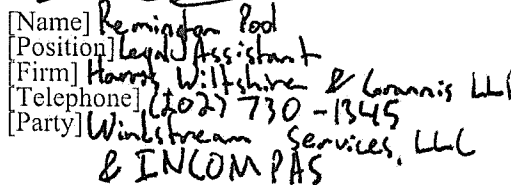 [Name] Remington Pool
[Position] Legal Assistant
[Firm] Harris, Wiltshire & Grannis LLP
[Telephone] (202) 730-1345
[Party] Windstream Services, LLC
& INCOMPAS